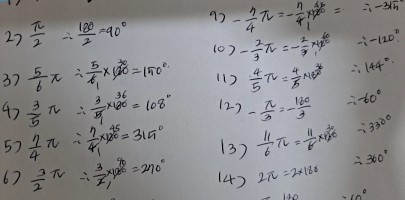 2) π/2 ∴ 180/2 = 90°
3) 5/6 π ∴ 5/6 × 180 = 150°
4) 3/5 π ∴ 3/5 × 180 = 108°
5) 7/4 π ∴ 7/4 × 180 = 315°
6) 3/2 π ∴ 3/2 × 180 = 270°
9) -7/4 π = -7/4 × 180 = ∴ -315°
10) -2/3 π = -2/3 × 180 ∴ -120°
11) 4/5 π = 4/5 × 180 ∴ 144°
12) -π/3 = -180/3 ∴ -60°
13) 11/6 π = 11/6 × 180 ∴ 330°
14) 2π = 2×180 ∴ 360°